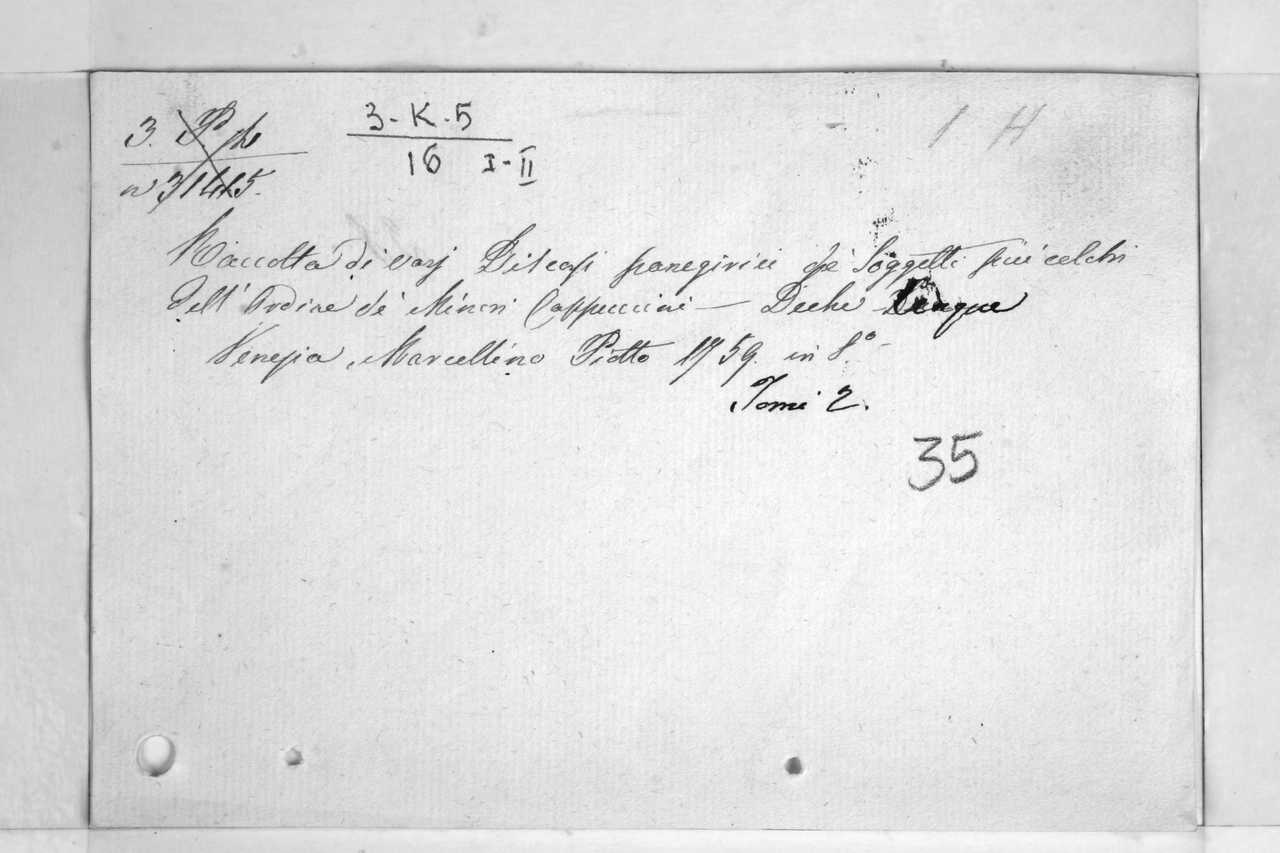 3.
3-K-5
16 I-II
n 31415.
1 H
Raccolta di varj Discorsi panegirici de' Soggetti piú celebri
dell' Ordine de' Minori Cappuccini — Deche Cinque
Venezia, Marcellino Piotto 1759. in 8.°
Tomi 2.
35